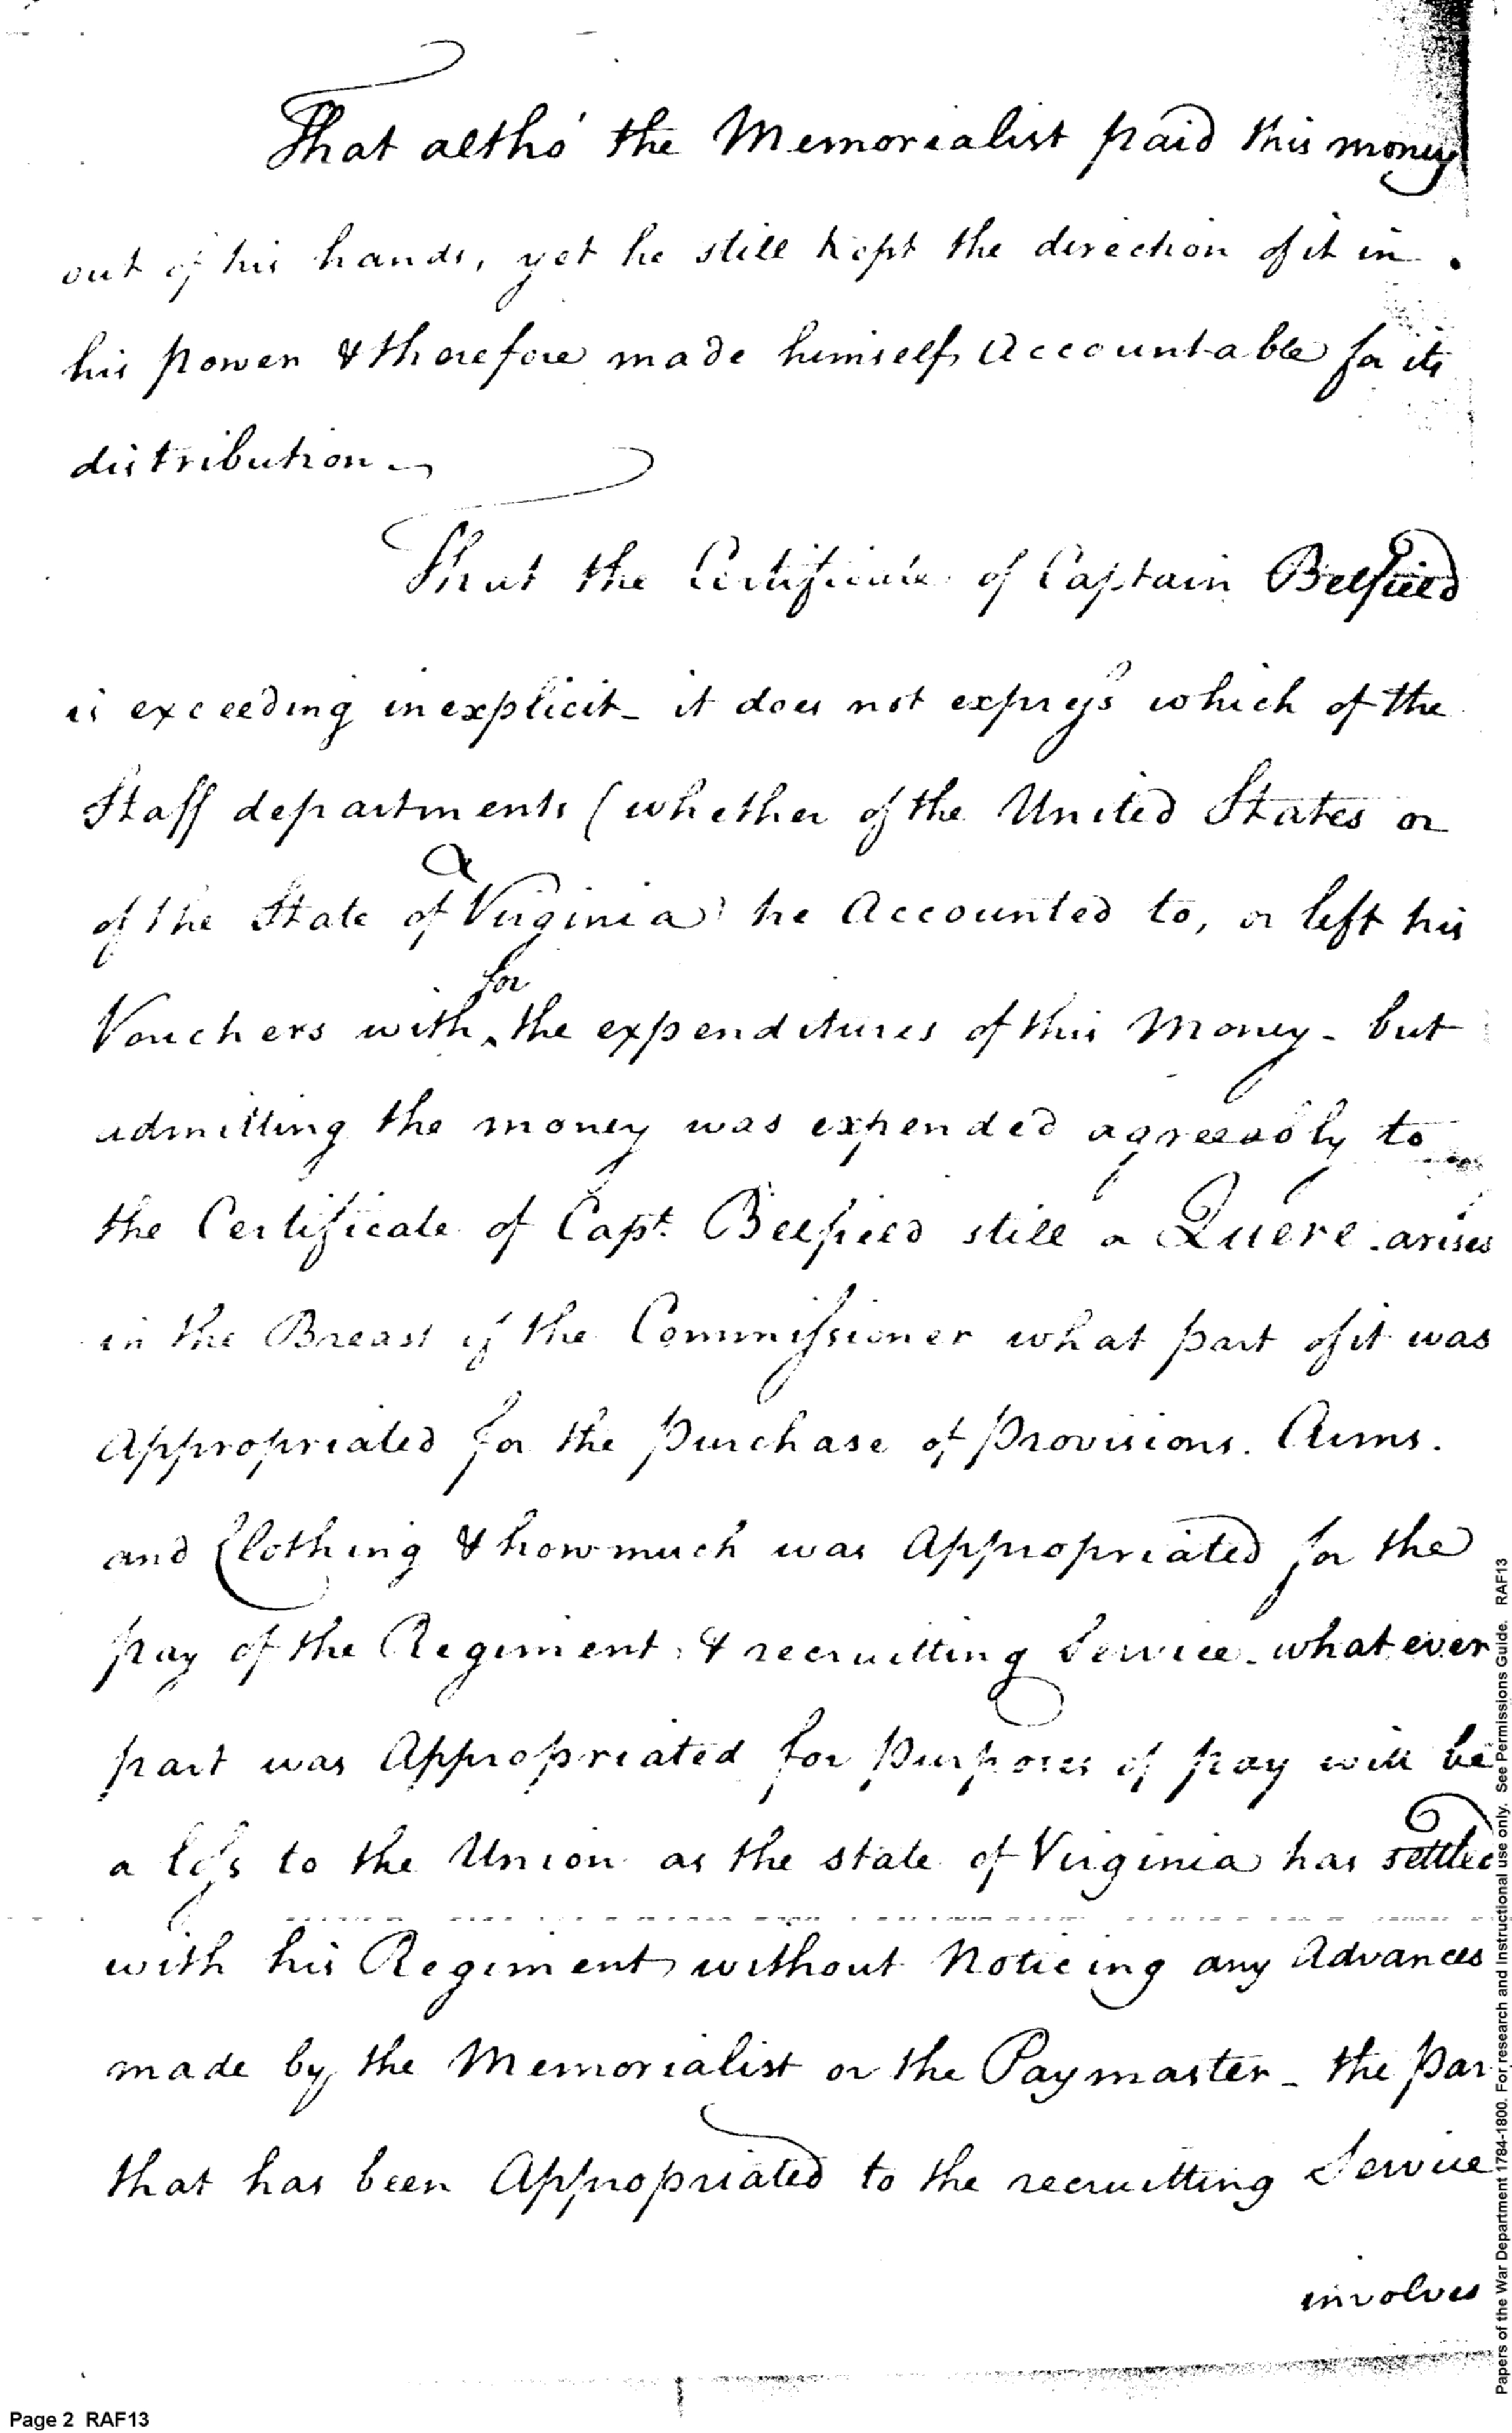 That altho' the Memorialist paid this money
out of his hands, yet he still kept the direction of it in
his power & therefore made himself Accountable for its
distribution –
That the Certificate of Captain Belfield
is exceeding inexplicit – it does not express which of the
Staff departments (whether of the United States or
of the State of Virginia) he Accounted to, or left his
for
Vouchers with ‸ the expenditures of this Money – but
admitting the money was expended agreeably to
the Certificate of Capt. Belfield still a Quere arises
in the Breast of the Commissioner what part of it was
Appropriated for the purchase of Provisions. Arms.
and Clothing & how much was Appropriated for the
pay of the Regiment & recruitting Service – what ever
part was Appropriated for Purposes of pay will be
a loss to the Union as the state of Virginia has settled
with his Regiment without Noticeing any Advances
made by the Memorialist or the Paymaster – the par
that has been Appropriated to the recruitting Service
involves
Page 2 RAF13
Papers of the War Department 1784-1800. For research and Instructional use only. See Permissions Guide. RAF13